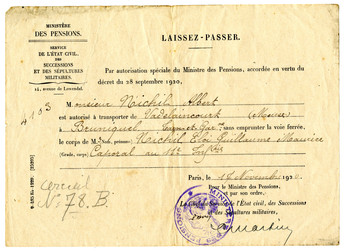 MINISTÈRE
DES PENSIONS.
SERVICE
DE L'ÉTAT CIVIL,
DES
SUCCESSIONS
ET DES SÉPULTURES
MILITAIRES.
LAISSEZ-PASSER.
Par autorisation spéciale du Ministre des Pensions, accordée en vertu du
décret du 28 septembre 1920,
4103
Monsieur Neichel Albert
est autorisé à transporter de Vadelaincourt (Meuse)
à Bruniquel Tarn et Gar. sans emprunter la voie ferrée,
le corps de Nom, prénom: Neichel, Eloi Guillaume Maurice
(Grade, corps) Caporal au
Paris, le Novembre 1920.
Pour le Ministre des Pensions
et par son ordre,
Le Chef du Service de l'État civil, des Successions
et des Sépultures militaires,
Cercueil
N° 78. B.